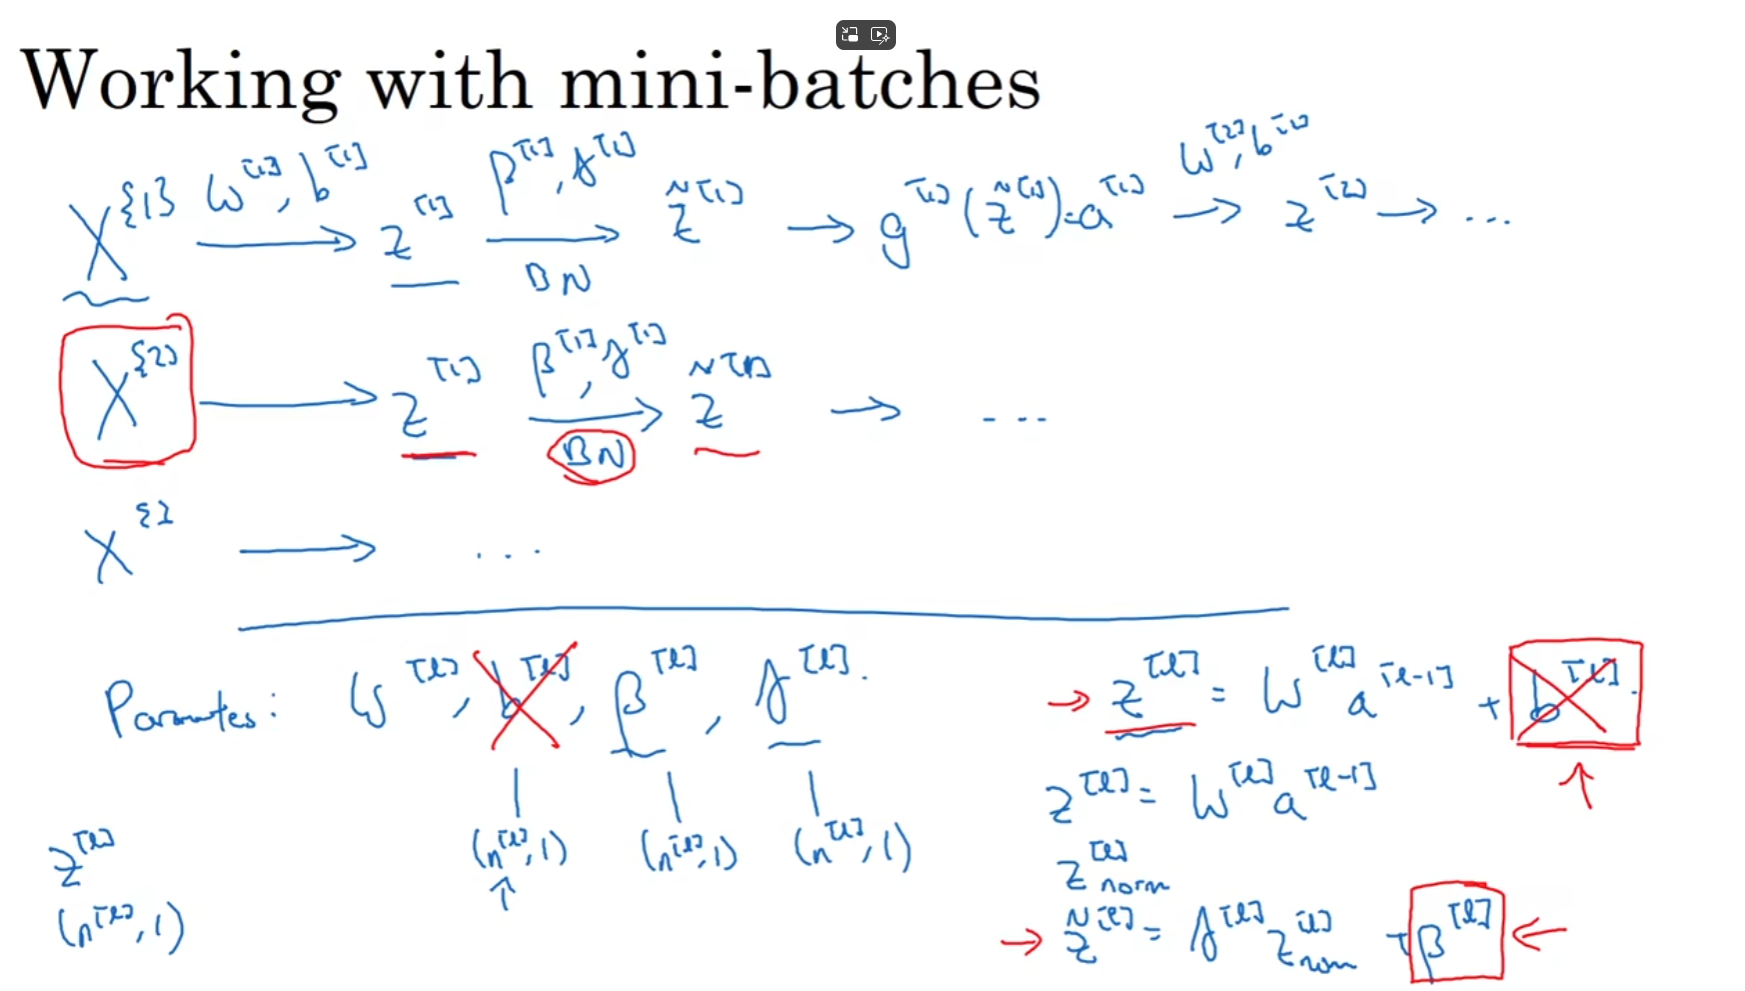 Working with mini-batches
X^{1} W^[1], b^[1] → z^[1] β^[1], γ^[1] → BN z̃^[1] → g^[1](z̃^[1]) = a^[1] W^[2], b^[2] → z^[2] → ...
X^{2} → z^[1] β^[1], γ^[1] → BN z̃^[1] → ...
X^{} → ...
Parametes: W^[l], b^[l], β^[l], γ^[l].
(n^[l], 1) (n^[l], 1) (n^[l], 1)
↑
z^[l]
(n^[l], 1)
→ z^[l] = W^[l] a^[l-1] + b^[l].
↑
z^[l] = W^[l] a^[l-1]
z^[l] norm
→ z̃^[l] = γ^[l] z^[l] norm + β^[l] ←